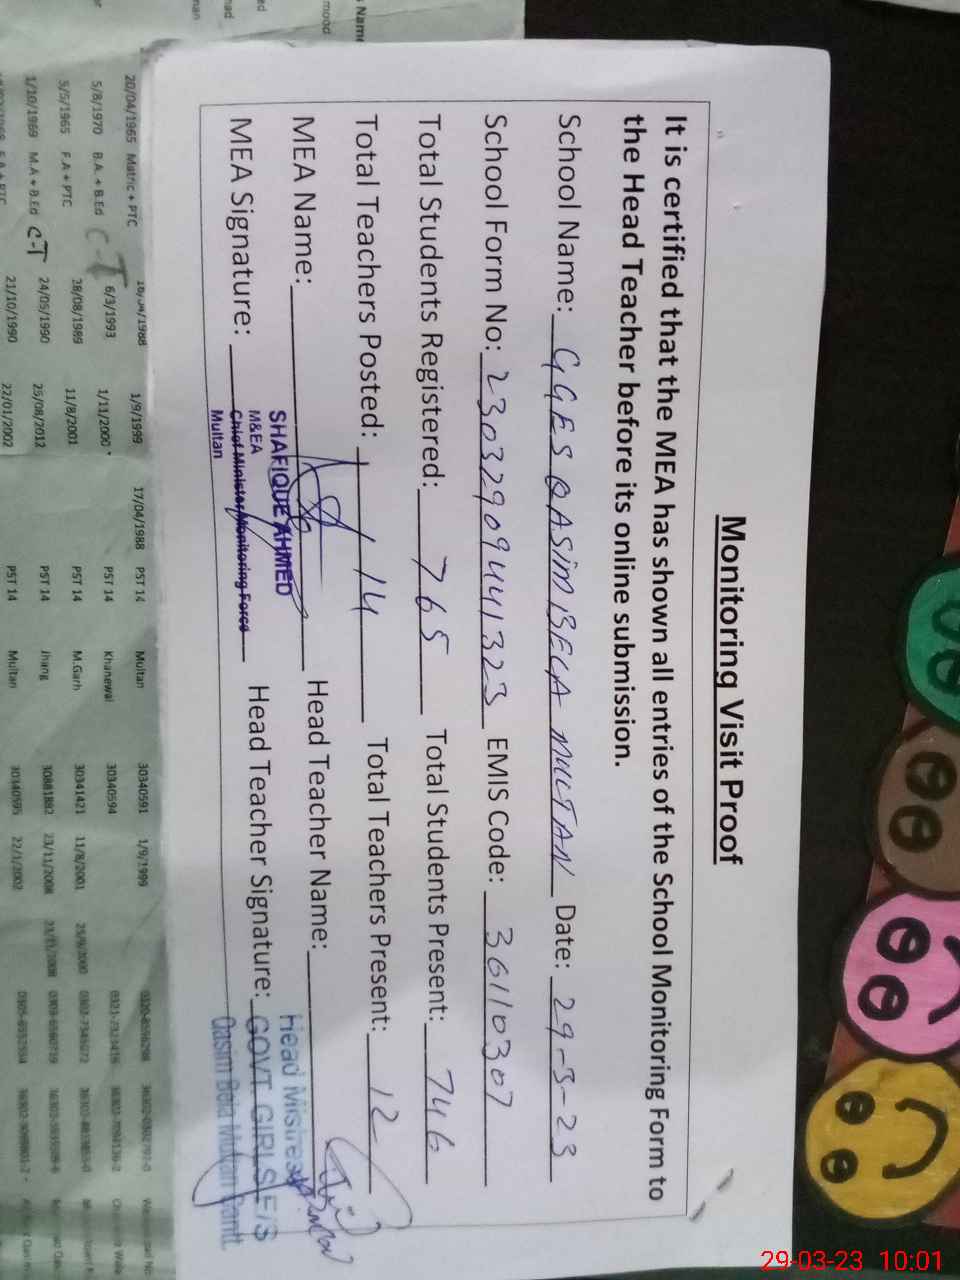 Monitoring Visit Proof
It is certified that the MEA has shown all entries of the School Monitoring Form to
the Head Teacher before its online submission.
School Name: GGES QASIM BELA MULTAN Date: 29-3-23
School Form No: 230329094441323 EMIS Code: 36110307
Total Students Registered: 765 Total Students Present: 746
Total Teachers Posted: 14 Total Teachers Present: 12
MEA Name: Head Teacher Name:
SHAFIQUE AHMED
M&EA
MEA Signature: Chief Minister Monitoring Force Head Teacher Signature:
Multan
Head Mistress
GOVT. GIRLS E/S
Qasim Bela Multan Cantt
20/04/1965 Matric + PTC 18/04/1988 1/9/1999 17/04/1988 PST 14 Multan 30340591 1/9/1999
5/8/1970 B.A. + B.Ed C-T 6/3/1993 1/11/2000 PST 14 Khanewal 30340594
5/5/1965 F.A + PTC 28/08/1989 11/8/2001 PST 14 M.Garh 30341421 11/8/2001 25/9/2000
1/10/1969 M.A + B.Ed C-T 24/05/1990 25/08/2012 PST 14 Jhang 30881882 23/11/2008 23/11/2008
21/10/1990 22/01/2002 PST 14 Multan 30340595 22/1/2002
29-03-23 10:01